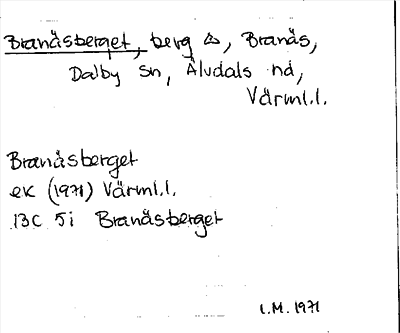 Branåsberget, berg, Branås,
Dalby sn, Älvdals hd,
Värml.l.
Branåsberget
ek (1971) Värml.l.
13C 5i Branåsberget
I.M. 1971